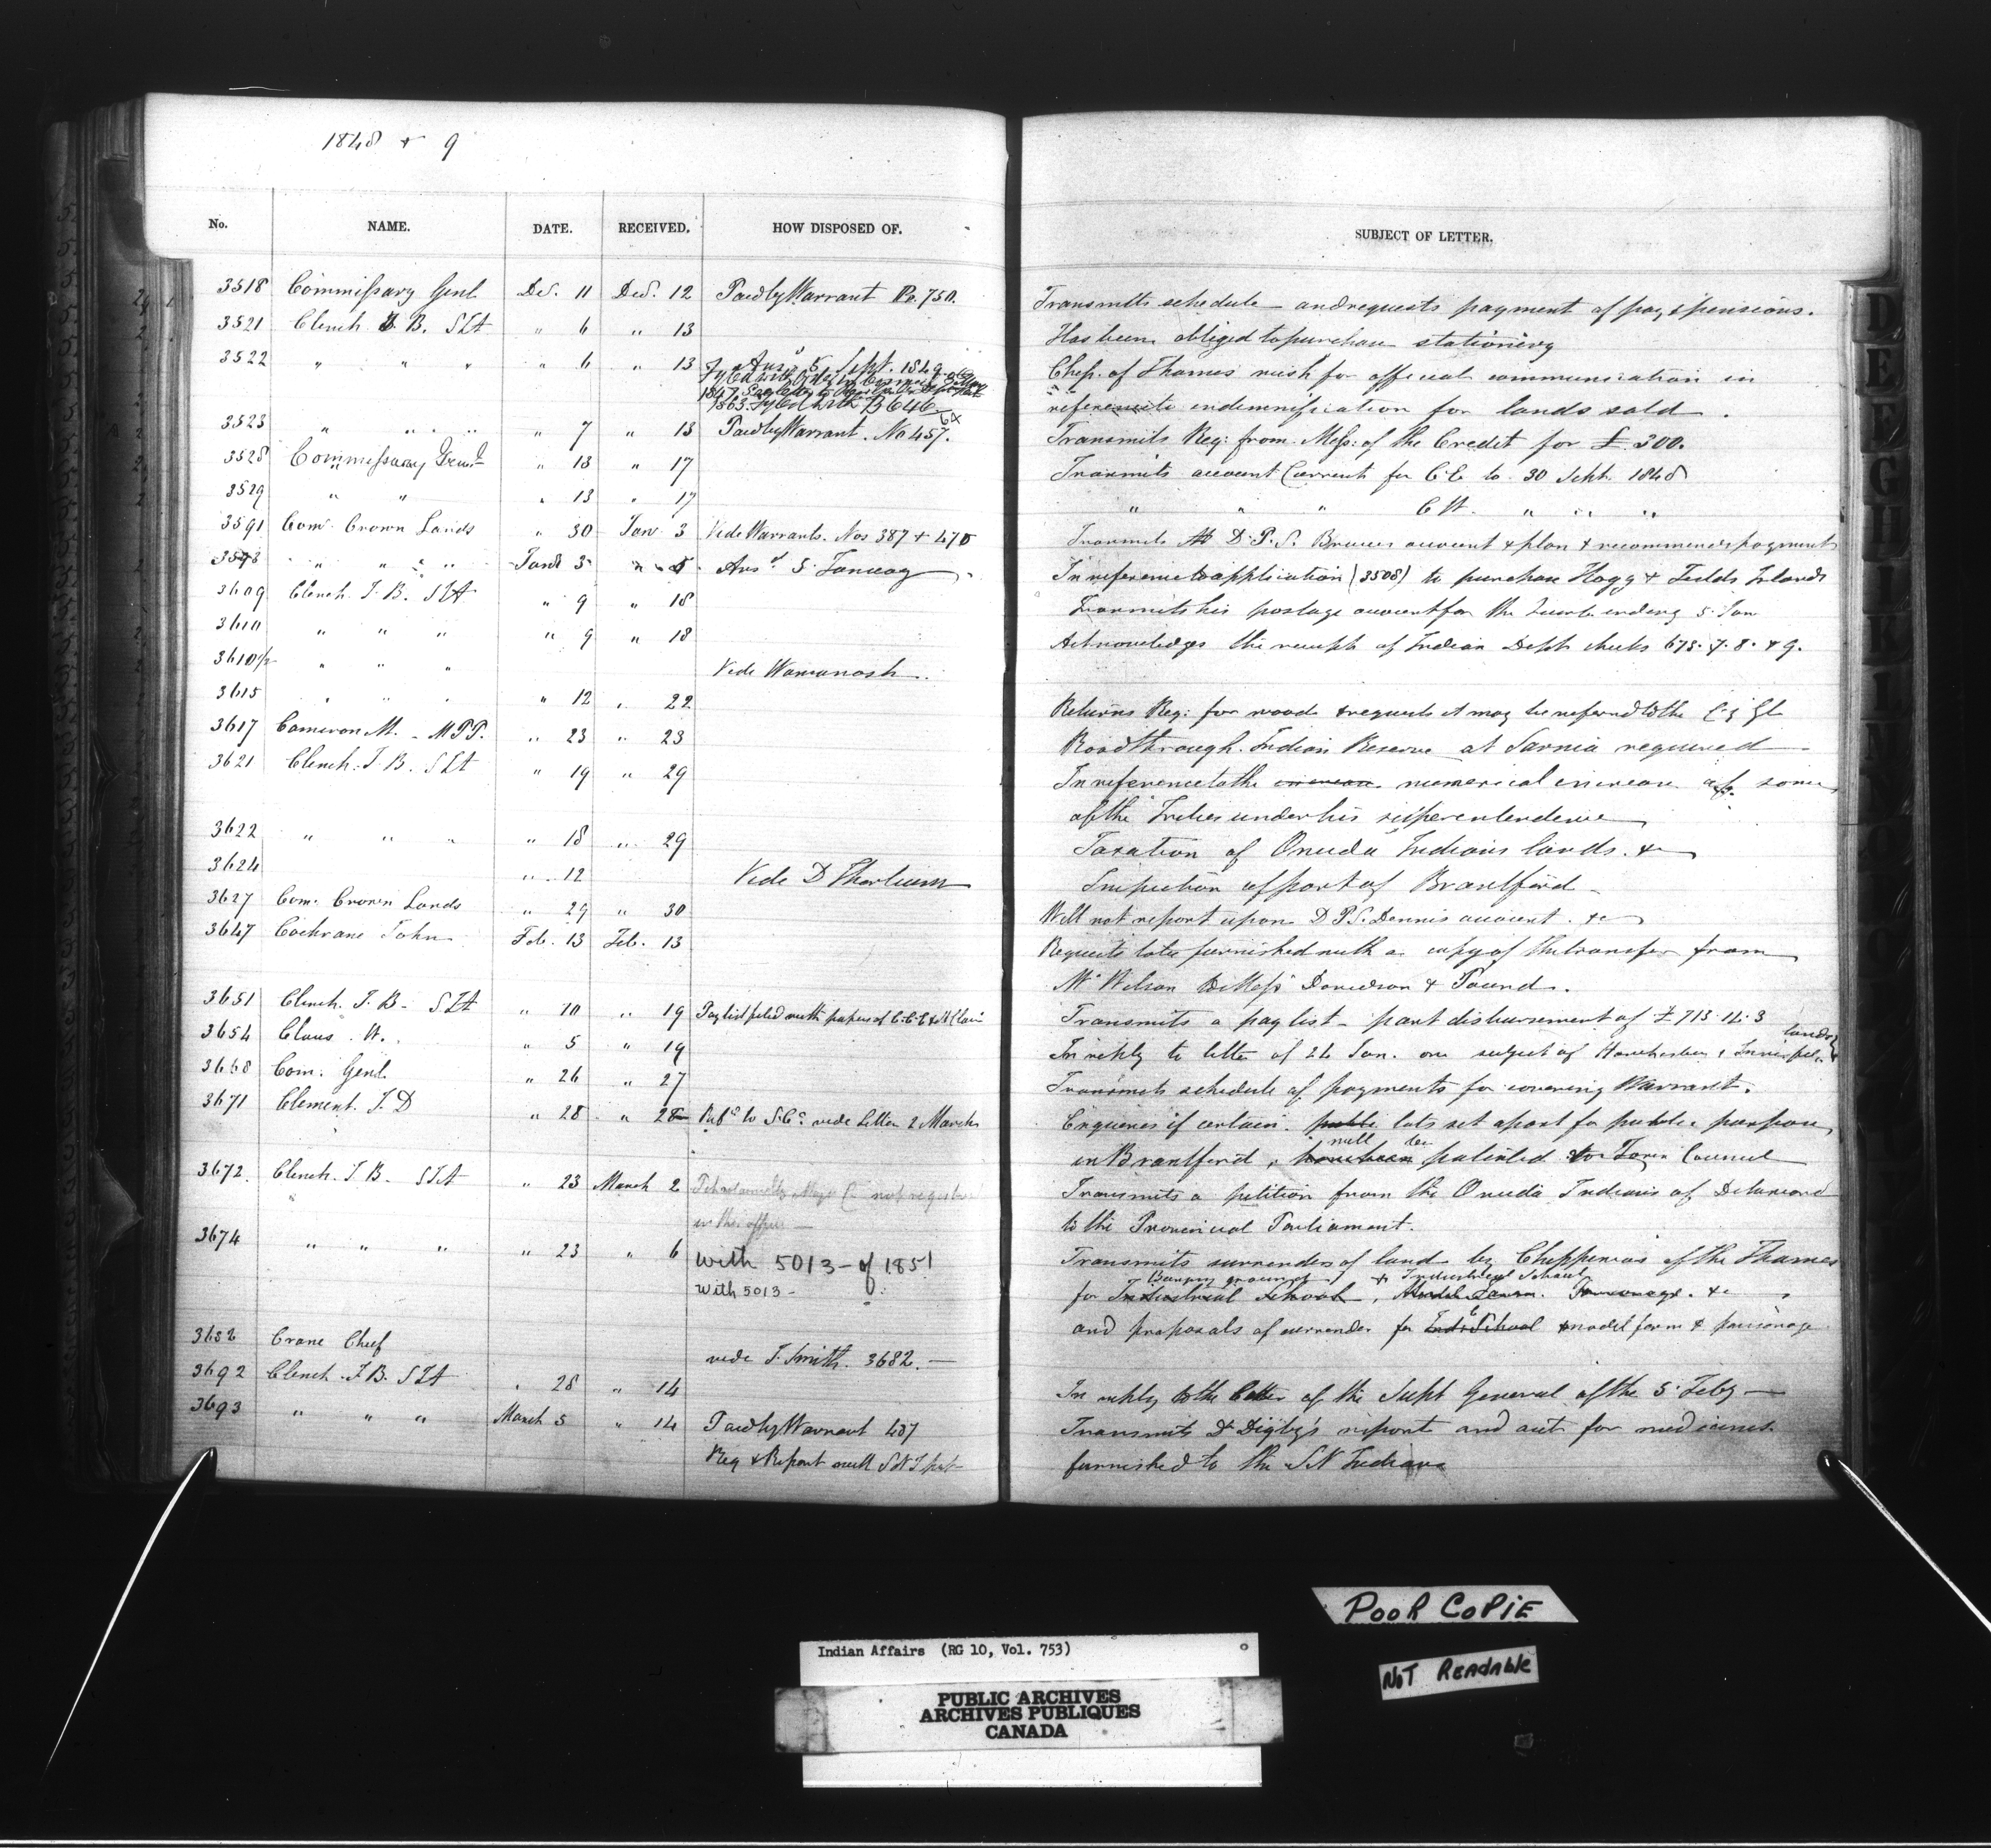 1848 + 9
No. NAME. DATE. RECEIVED. HOW DISPOSED OF. SUBJECT OF LETTER.
3518 Commissary Genl Dec. 11 Dec. 12 Paid by Warrant No. 750. Transmits schedule and requests payment of pay & pensions.
3521 Clench J. B. SIA " 6 " 13 Has been obliged to purchase stationery
3522 " " " " 6 " 13 Ansd 5 Sept. 1849 Chip. of Thames wish for official communication in
1863. Fyled with B 646 reference to indemnification for lands sold.
3523 " " " " 7 " 13 Paid by Warrant. No 457. Transmits Req: from Mess: of the Credit for £ 300.
3528 Commissary Genl " 13 " 17 Transmits account Current for C.E to 30 Sept. 1848
3529 " " " 13 " 17 " " " C W. " " "
3591 Com. Crown Lands " 30 Jan. 3 Vide Warrants. Nos 387 + 470 Transmits D.P.S. Bruces account & plan & recommends payment
3598 " " " Jan 3 " 5 Ansd 5 January In reference to application (3508) to purchase Hogg & Islands
3609 Clench J. B. SIA " 9 " 18 Transmits his postage account for the Quart ending 5 Jan
3610 " " " " 9 " 18 Acknowledges the receipt of Indian Dept checks 673. 7. 8. & 9.
3610½ " " " Vide Wawanosh.
3615 " " " " 12 " 22 Returns Req: for wood & requests it may be referred to the
3617 Cameron M. MPP. " 23 " 23 Road through Indian Reserve at Sarnia required
3621 Clench J. B. SIA " 19 " 29 In reference to the increase numerical increase of some
of the Tribes under his superintendence
3622 " " " " 18 " 29 Taxation of Oneida Indians lands. &c
3624 " 12 Vide D Thorburn Inspection of part of Brantford
3627 Com. Crown Lands " 29 " 30 Will not report upon D P S. Dennis account. &c
3647 Cochrane John Feb. 13 Feb. 13 Requests to be furnished with a copy of the transfer from
Mr Wilson to Messrs Davidson & Pound.
3651 Clench J. B. SIA " 10 " 19 Pay list filed with papers of Transmits a pay list part disbursement of £ 713.14.3
3654 Claus W. " 5 " 19 In reply to letter of 24 Jan. on subject of lands
3668 Com. Genl " 26 " 27 Transmits schedule of payments for covering Warrant.
3671 Clement J. D " 28 " 28 Refd to vide Letter 2 March Enquires if certain public lots set apart for public purposes
in Brantford, will be patented to Town Council
3672. Clench J. B. SIA " 23 March 2 not registered Transmits a petition from the Oneida Indians of Delaware
in this office to the Provincial Parliament.
3674 " " " " 23 " 6 with 5013 - of 1851 Transmits surrender of land by Chippewas of the Thames
Burying ground & Industrial School
with 5013 - for Industrial School, Model Farm. Parsonage. &c
and proposals of surrender for School & model farm & parsonage
3682 Crane Chief vide J. Smith. 3682.
3692 Clench J. B. SIA " 28 " 14 In reply to the letter of the Supt General of the 5 Feby
3693 " " " March 5 " 14 Paid by Warrant 437 Transmits Dr Digby's report and act for medicines
Req & Report with furnished to the SN Indians
D
E
F
G
H
I
K
L
POOR COPIE
NOT READABLE
Indian Affairs (RG 10, Vol. 753)
PUBLIC ARCHIVES
ARCHIVES PUBLIQUES
CANADA